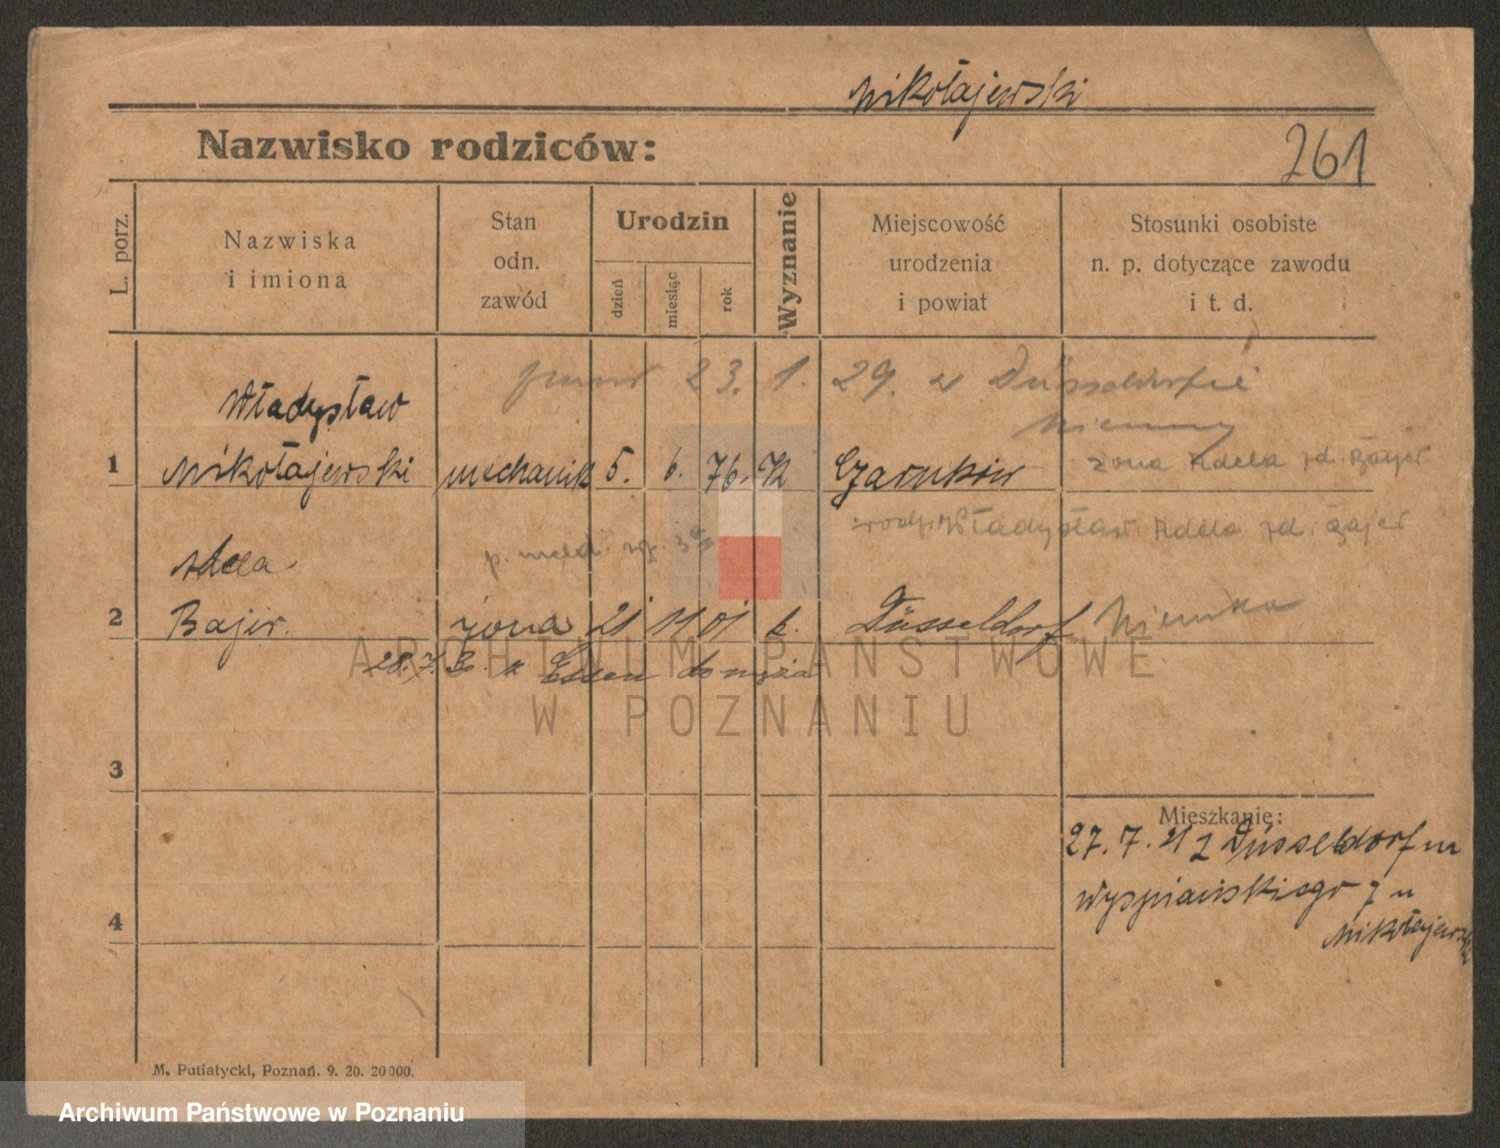 Mikołajewski
Nazwisko rodziców:
261
L. porz.
Nazwiska
i imiona
Stan
odn.
zawód
Urodzin
dzień
miesiąc
rok
Wyznanie
Miejscowość
urodzenia
i powiat
Stosunki osobiste
n. p. dotyczące zawodu
i t. d.
23. 1. 29. w Düsseldorfie
Niemcy
Władysław
1 Mikołajewski mechanik 5. 6. 76. Czarnków żona Adela zd. Bajer
Władysław Adela zd. Bajer
p. meld.
Adela
2 Bajer. żona 21 11 01 k. Düsseldorf Niemka
28. 7. 30. Essen do męża
ARCHIWUM PAŃSTWOWE
W POZNANIU
3
Mieszkanie:
27. 7. 21 z Düsseldorf n
Wyspiańskiego 7 u
Mikołajewski
4
M. Putiatycki, Poznań. 9. 20. 20000.
Archiwum Państwowe w Poznaniu